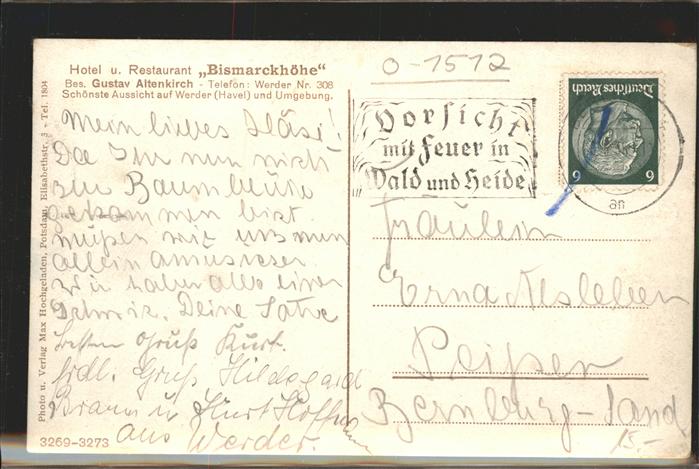 Hotel u. Restaurant „Bismarckhöhe“
Bes. Gustav Altenkirch - Telefon: Werder Nr. 308
Schönste Aussicht auf Werder (Havel) und Umgebung.
Mein liebes Häsi!
Da Ihr nun nicht
zur Baumblüte
gekommen bist
müßen wir uns nun
allein amusieren
Wir haben alle einen
Schwik. Deine
besten Gruß Kurt.
frdl. Gruß Hildegard
Braun u. Kurt Hoffmann
aus Werder.
3269-3273
Photo u. Verlag Max Hochgeladen, Potsdam, Elisabethstr. 3 - Tel. 1804
0-1512
Vorsicht
mit Feuer in
Wald und Heide
Deutsches Reich
6 6
an
Fräulein
Erna Alsleben
Peißen
Bernburg-Land
15.-